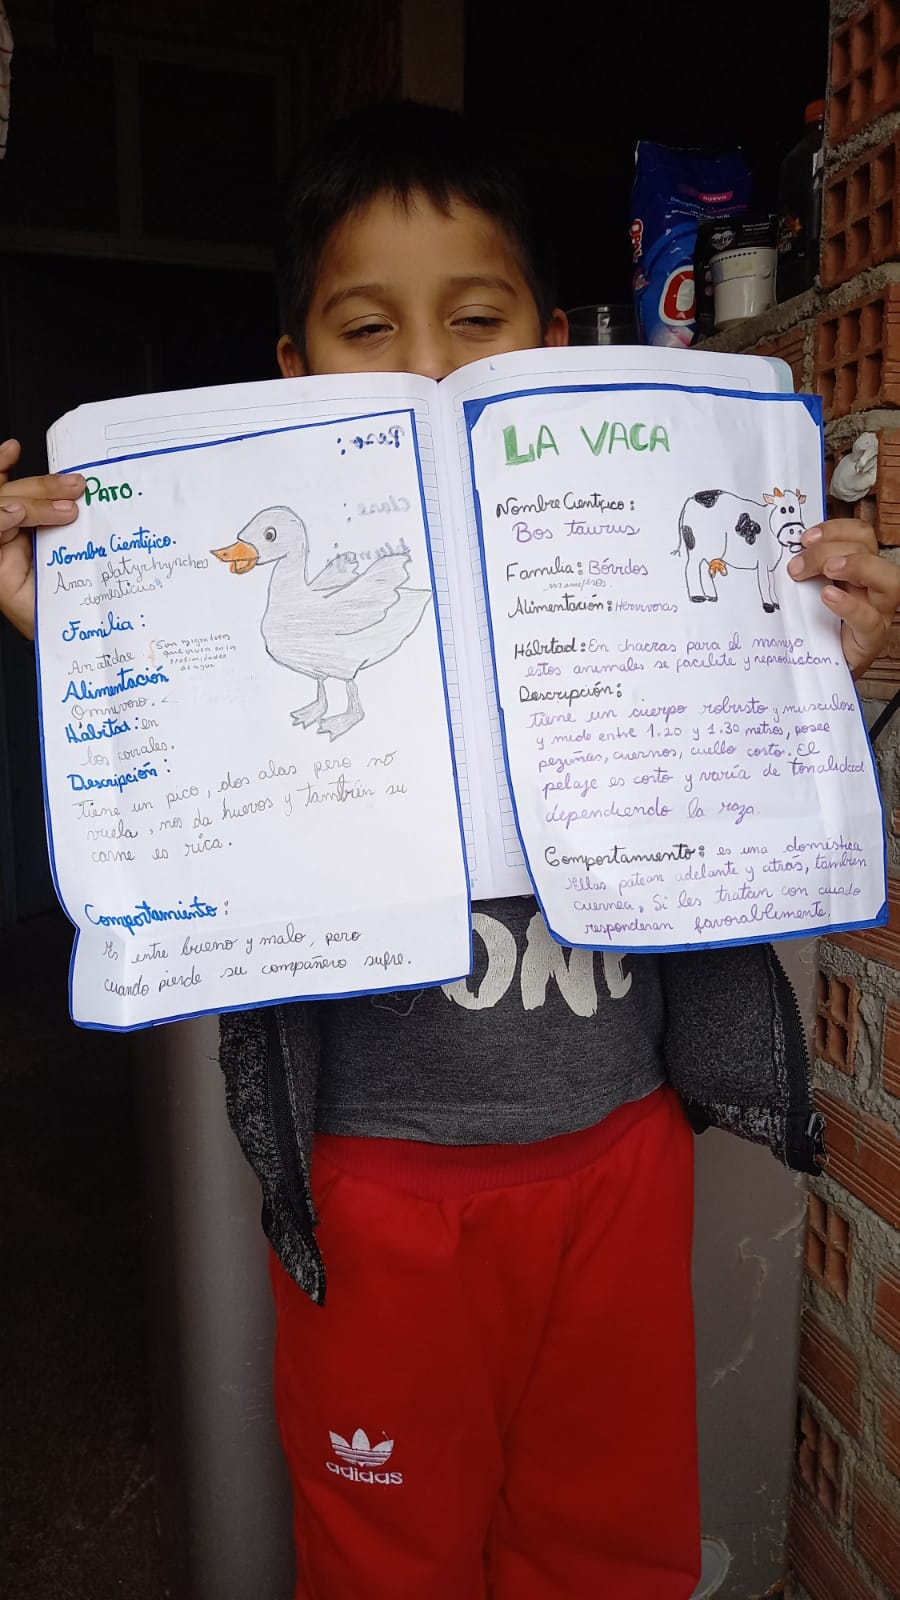 PATO.
Nombre Científico.
Anas platyrhynchos
domesticus.
Familia:
Anatidae
Son migradores
que viven en las
proximidades
de agua
Alimentación
Omnívoro.
Hábitad: en
los corrales.
Descripción:
Tiene un pico, dos alas pero no
vuela, nos da huevos y también su
carne es rica.
Comportamiento:
Es entre bueno y malo, pero
cuando pierde su compañero sufre.
Peso:
Clase:
LA VACA
Nombre Científico:
Bos taurus
Familia: Bóvidos
mamíferos.
Alimentación: Hervívoras
Hábitad: En chacras para el manejo
estos animales se facilite y reproduzcan.
Descripción:
Tiene un cuerpo robusto y musculoso
y mide entre 1.20 y 1.30 metros, posee
pezuñas, cuernos, cuello corto. El
pelaje es corto y varía de tonalidad
dependiendo la raza.
Comportamiento: es una doméstica
Ellas patean adelante y atrás, también
cuernea. Si les tratan con cuidado
responderan favorablemente.
NUEVO
ONE
adidas